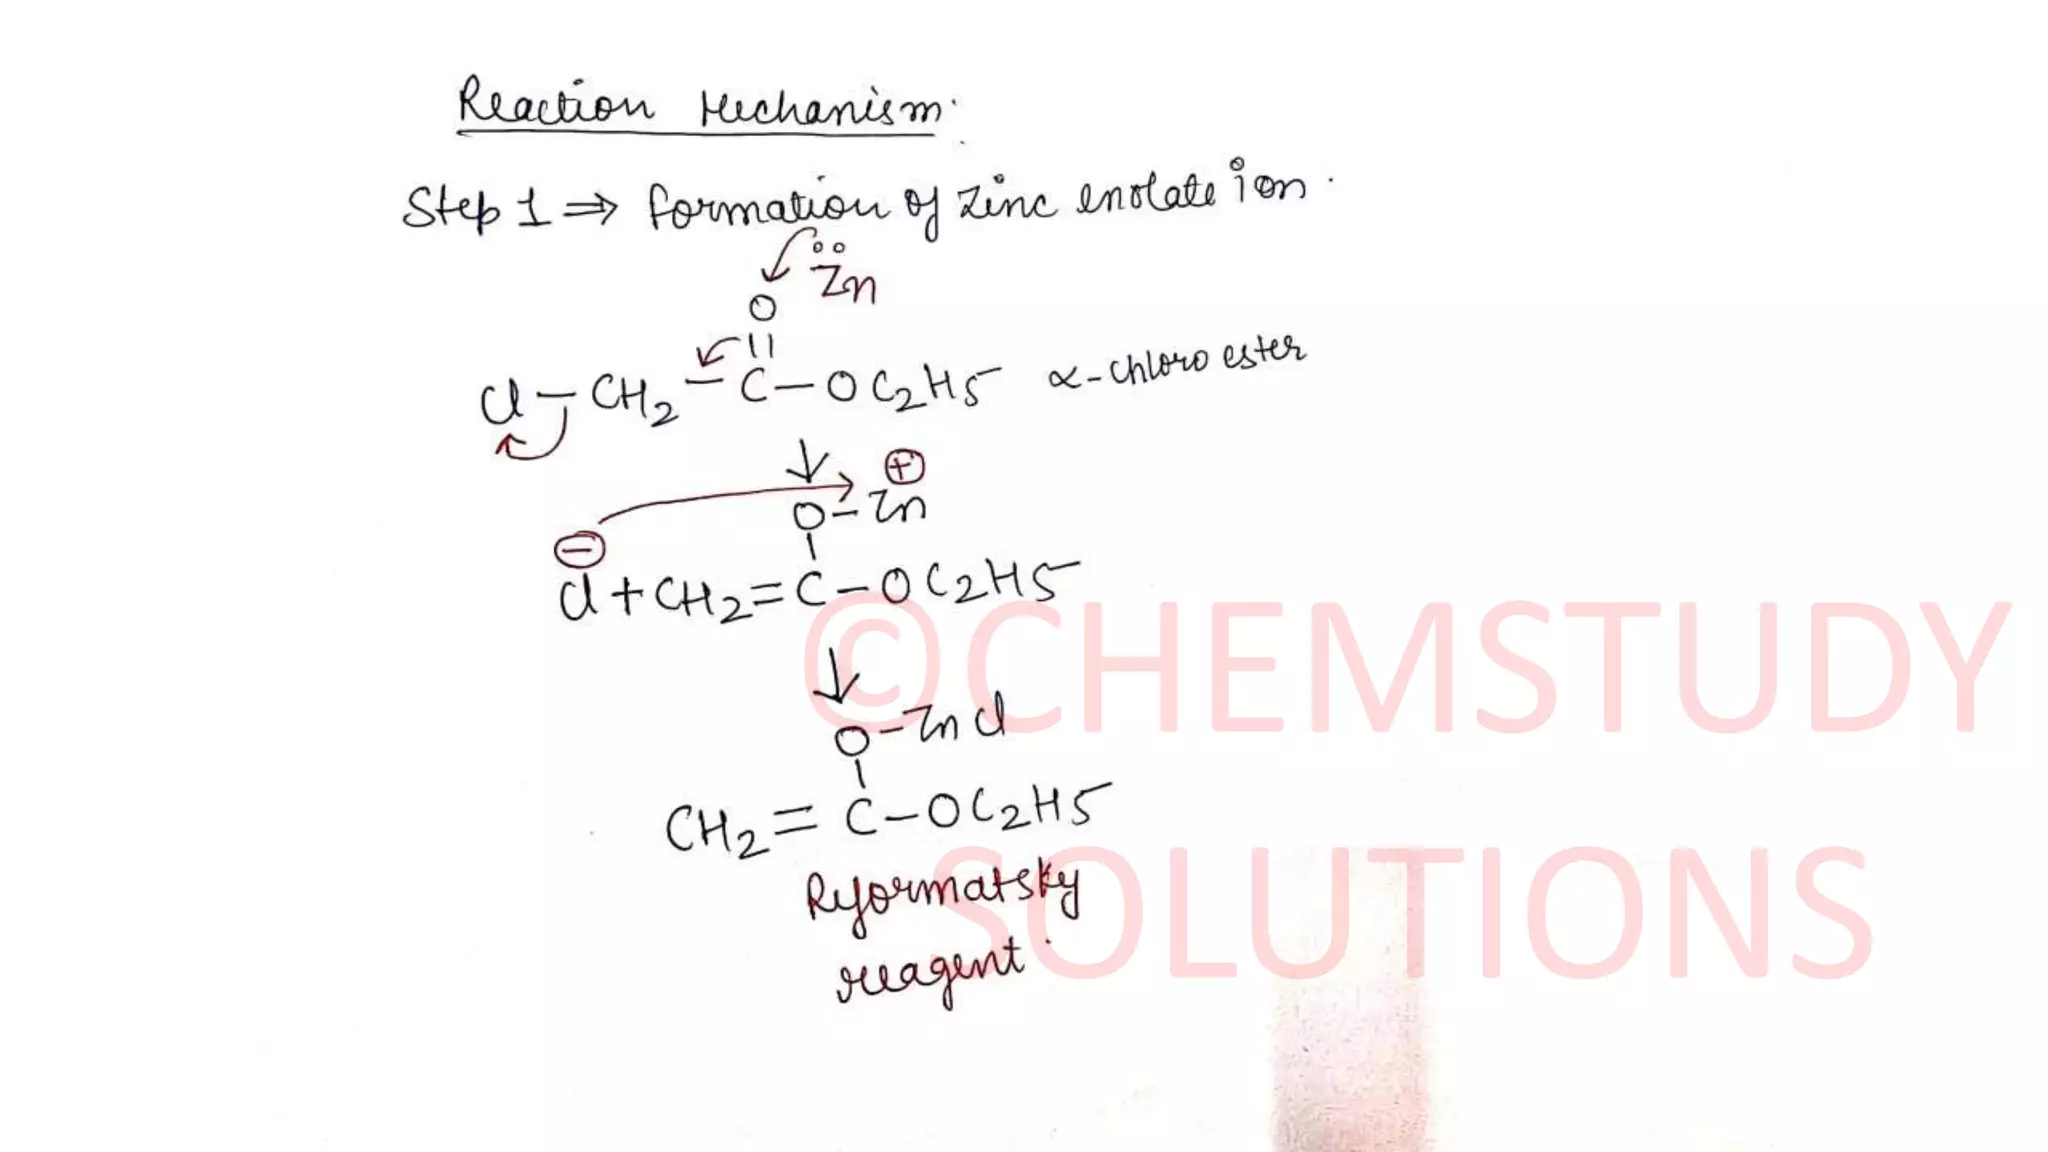 Reaction Mechanism.
Step 1 ⇒ formation of zinc enolate ion.
Zn
O
||
Cl-CH2-C-OC2H5 α-chloro ester
↓ ⊕
O-Zn
⊖
Cl+CH2=C-OC2H5
↓
O-ZnCl
CH2=C-OC2H5
Reformatsky
reagent.
©CHEMSTUDY
SOLUTIONS